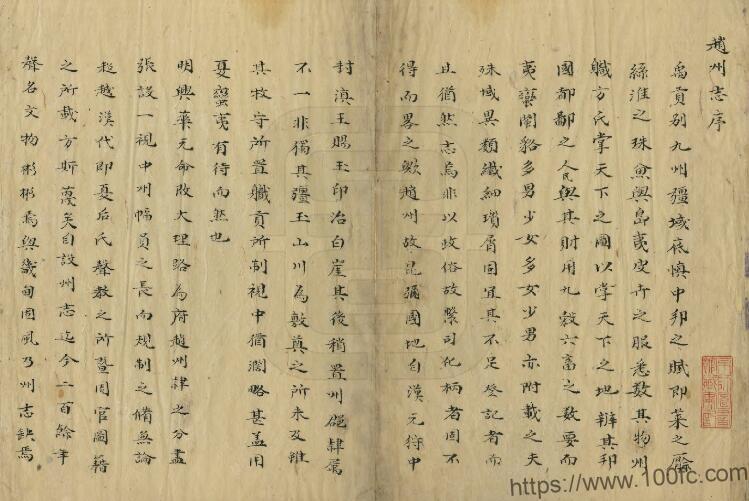 趙州志序
禹貢别九州疆域底慎中邦之賦即萊之檿
絲淮之珠魚與島夷皮卉之服悉数其物州
職方氏掌天下之圖以掌天下之地辨其邦
國都鄙之人民與其財用九榖六畜之数要而
夷蠻閩貉多男少女多女少男亦附載之夫
殊域異類纖細瑣屑固宜其不足登記者而
止猶然志焉非以政俗故繫司化柄者固不
得而畧之歟趙州故昆彌國地自漢元狩中
封滇王賜玉印治白崖其後稍置州郡隸属
不一非獨其疆土山川為敷奠之所未及雖
其牧守所置職貢所制視中猶濶略甚盖用
夏蠻夷有待而然也
明興華元命改大理路為府趙州隷之分畫
張設一視中州幅員之長而規制之備無論
超越漢代即夏后氏聲教之所曁周官圖籍
之所載方斯蔑矣自設州志迄今二百餘年
聲名文物彬彬焉與畿甸同風乃州志缺焉
https://www.100fc.com